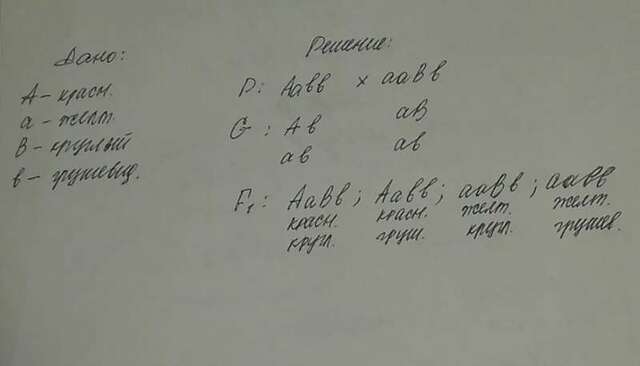 Дано:
А – красн.
а – желт.
В – круглый
в – грушевид.
Решение:
Р: Аавв × ааВв
G: Ав аВ
ав ав
F₁: АаВв; Аавв; ааВв; аавв
красн. красн. желт. желт.
кругл. груш. кругл. грушев.